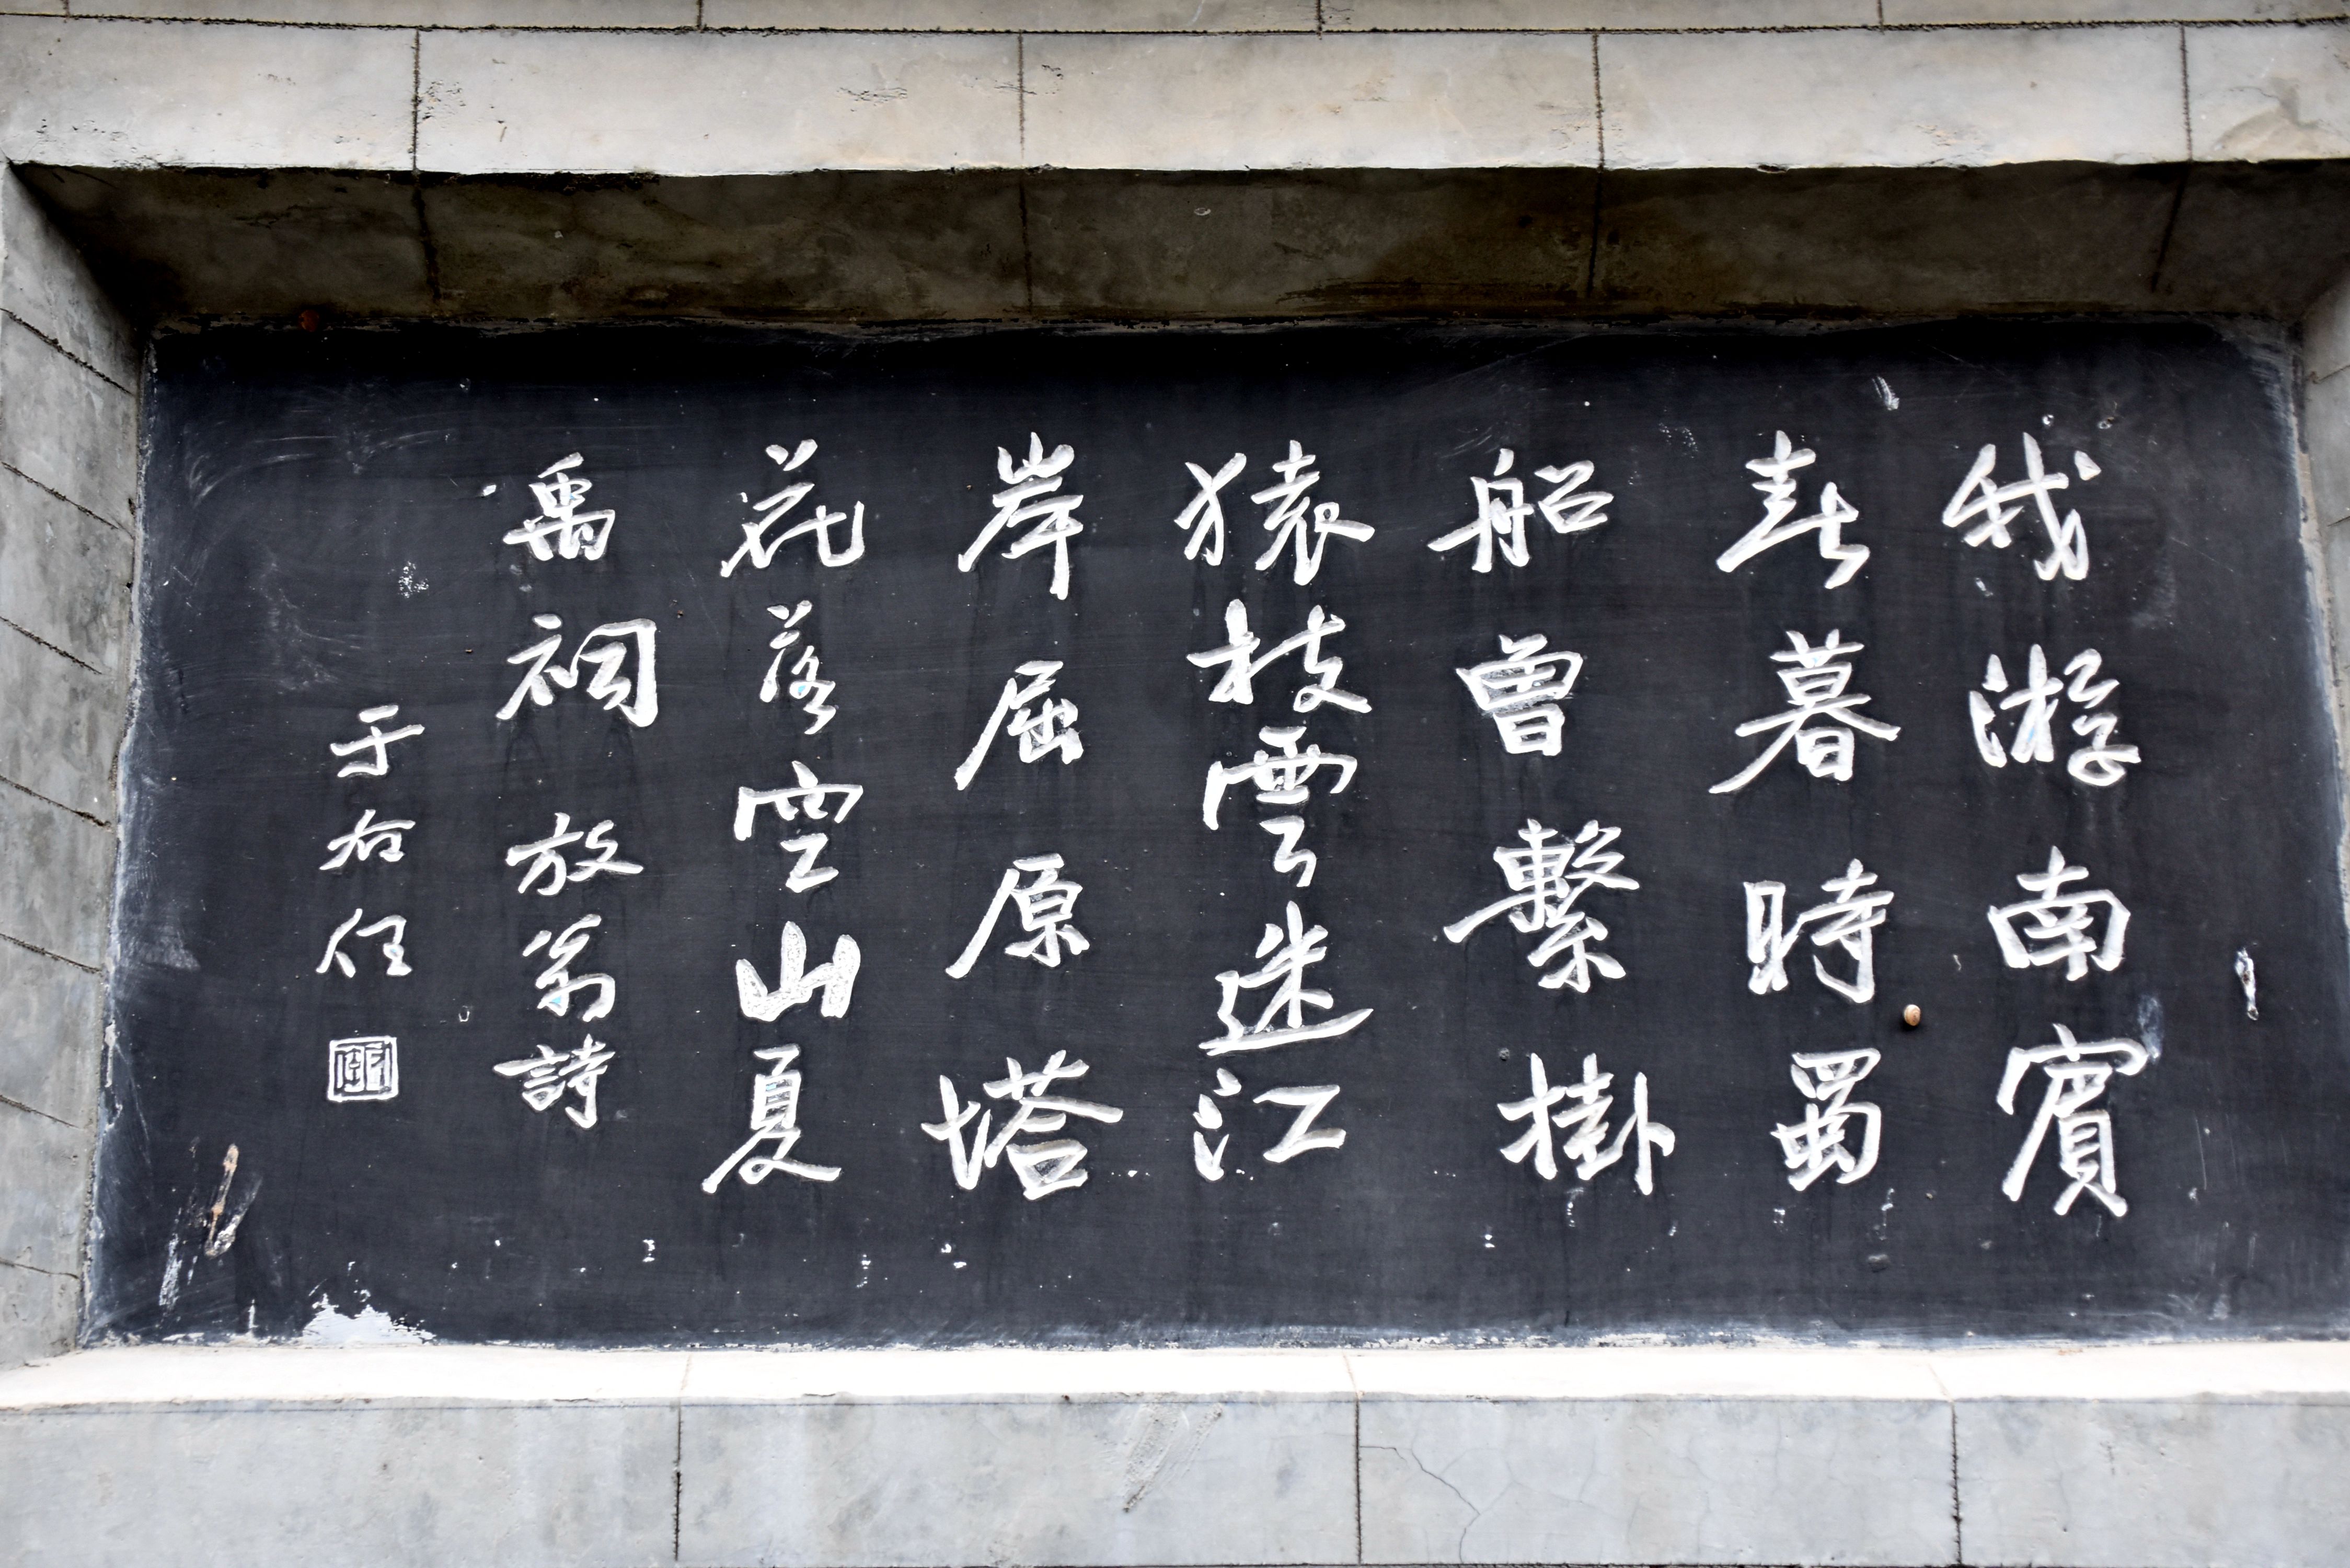 我游南賓
春暮時蜀
船曾繫掛
猿枝雲迷江
岸屈原塔
花落空山夏
禹祠 放翁詩
于右任